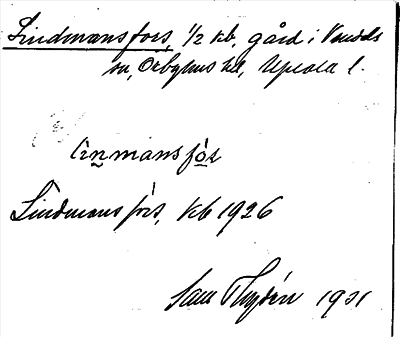 Lindmansfors, 1/2 kb, gård i Vendels
sn, Örbyhus hd, Upsala l.
linmansfós
Lindmansfors, kb 1926
Sam 1931